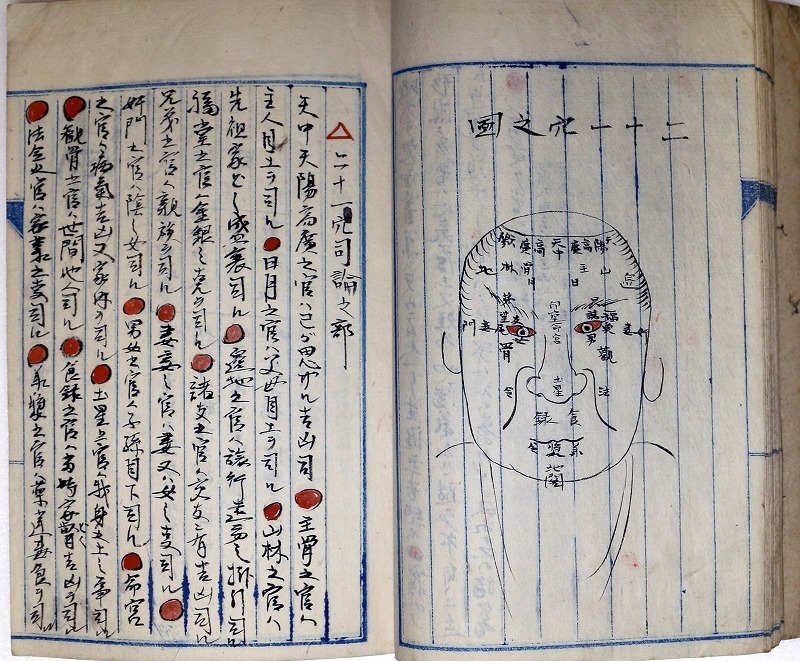 二十一穴之図
天中
天陽
高廣
主骨
日月
山林
印堂命宮
福堂
男
妻
奸
門
観
骨
土星
法
令
食
録
承
漿
地閣
△二十一穴司論之部
天中天陽高廣之官ハ己ガ思 吉凶司●主骨之官ハ
主人目上ヲ司ル●日月之官ハ父母目上ヲ司ル●山林之官ハ
先祖家 盛衰司ル●遷地之官ハ旅行遠方之掛引司ル
福堂之官ハ金銀之 ヲ司ル●諸友之官ハ交友之有吉凶司ル
兄弟之官ハ親族ヲ司ル●妻妾之官ハ妻又ハ女之支司ル●
奸門之官ハ陰之女司ル●男女之官ハ子孫目下司ル●命宮
之官ハ病氣吉凶又家体ヲ司ル●土星之官ハ我身之上之事司ル
●観骨之官ハ世間他人司ル●食録之官ハ當時家督吉凶ヲ司ル
●法令之官ハ家業之支司ル●承漿之官ハ薬違毒食ヲ司ル